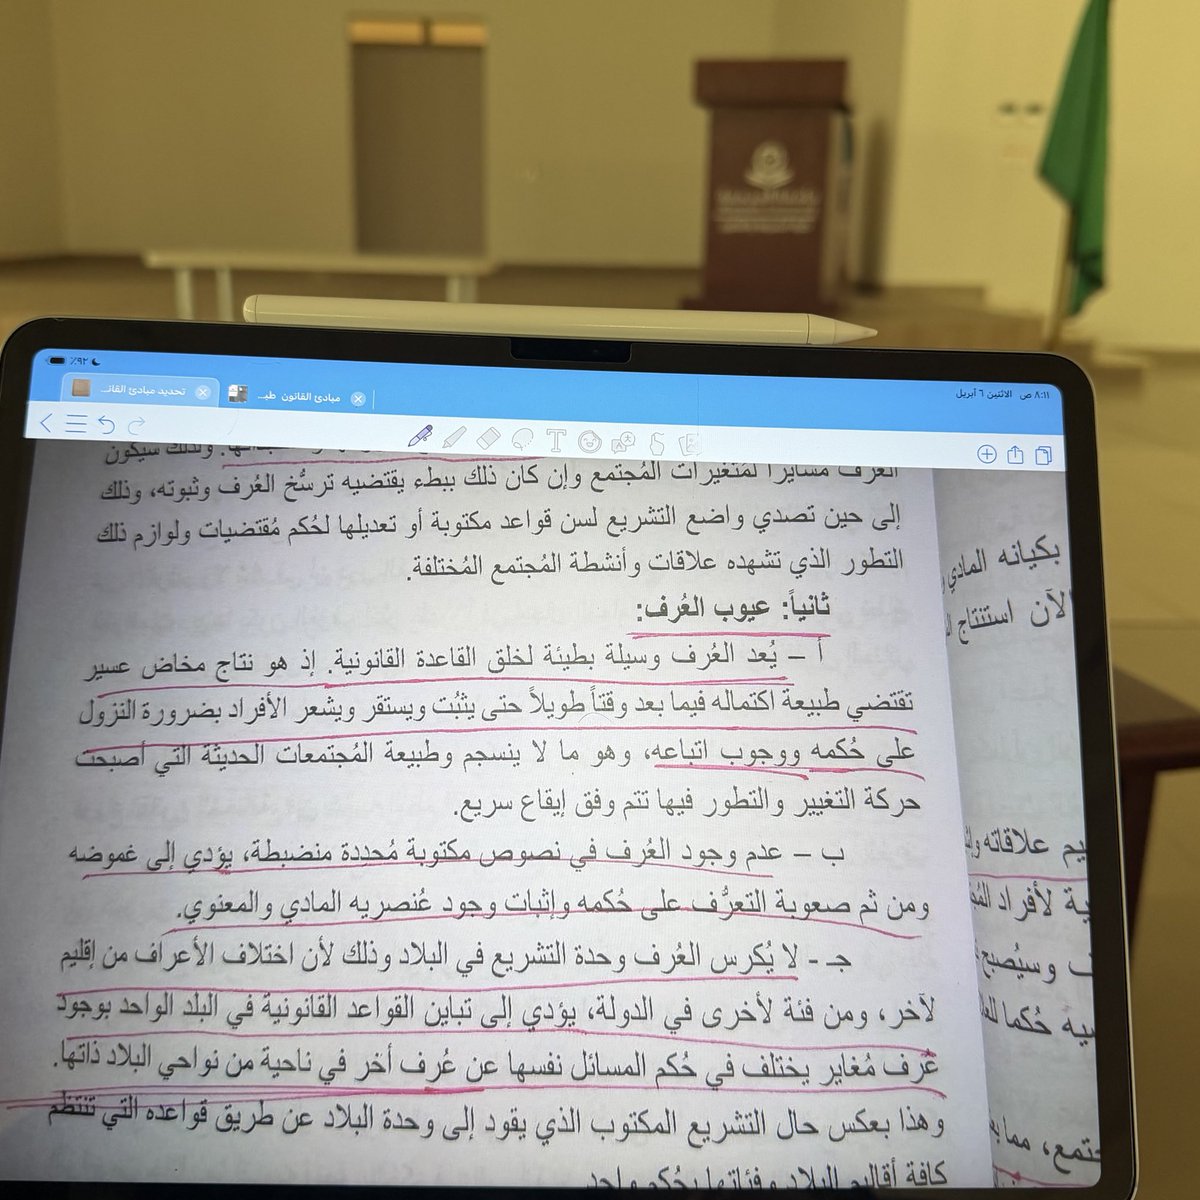 ٨:١١ ص الاثنين ٦ أبريل
٩٢٪
مبادئ القانون طبـ...
تحديد مبادئ القانـ...
العُرف مسايراً لمتغيرات المُجتمع وإن كان ذلك ببطء يقتضيه ترسُّخ العُرف وثبوته، وذلك
إلى حين تصدي واضع التشريع لسن قواعد مكتوبة أو تعديلها لحُكم مُقتضيات ولوازم ذلك
التطور الذي تشهده علاقات وأنشطة المُجتمع المُختلفة.
ثانياً: عيوب العُرف:
أ – يُعد العُرف وسيلة بطيئة لخلق القاعدة القانونية. إذ هو نتاج مخاض عسير
تقتضي طبيعة اكتماله فيما بعد وقتاً طويلاً حتى يثبُت ويستقر ويشعر الأفراد بضرورة النزول
على حُكمه ووجوب اتباعه، وهو ما لا ينسجم وطبيعة المُجتمعات الحديثة التي أصبحت
حركة التغيير والتطور فيها تتم وفق إيقاع سريع.
ب – عدم وجود العُرف في نصوص مكتوبة مُحددة منضبطة، يؤدي إلى غموضه
ومن ثم صعوبة التعرُّف على حُكمه وإثبات وجود عُنصريه المادي والمعنوي.
جـ - لا يُكرس العُرف وحدة التشريع في البلاد وذلك لأن اختلاف الأعراف من إقليم
لآخر، ومن فئة لأخرى في الدولة، يؤدي إلى تباين القواعد القانونية في البلد الواحد بوجود
عُرف مُغاير يختلف في حُكم المسائل نفسها عن عُرف أخر في ناحية من نواحي البلاد ذاتها.
وهذا بعكس حال التشريع المكتوب الذي يقود إلى وحدة البلاد عن طريق قواعده التي تنتظم
كافة أقاليم البلاد وفئاتها بحُكم واحد
بكيانه المادي
الآن استنتاج
علاقاته
لأفراد
وسيُصبح
حُكما
مما